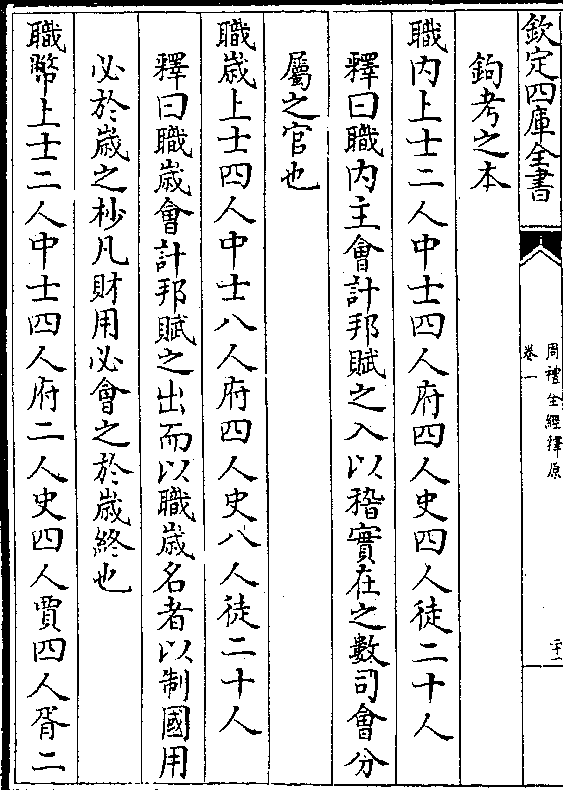 欽定四庫全書
周禮全經釋原
卷一
二十一
鉤考之本
職内上士二人中士四人府四人史四人徒二十人
釋曰職内主會計邦賦之入以稽實在之數司會分
屬之官也
職歲上士四人中士八人府四人史八人徒二十人
釋曰職歲會計邦賦之出而以職歲名者以制國用
必於歲之杪凡財用必會之於歲終也
職幣上士二人中士四人府二人史四人賈四人胥二